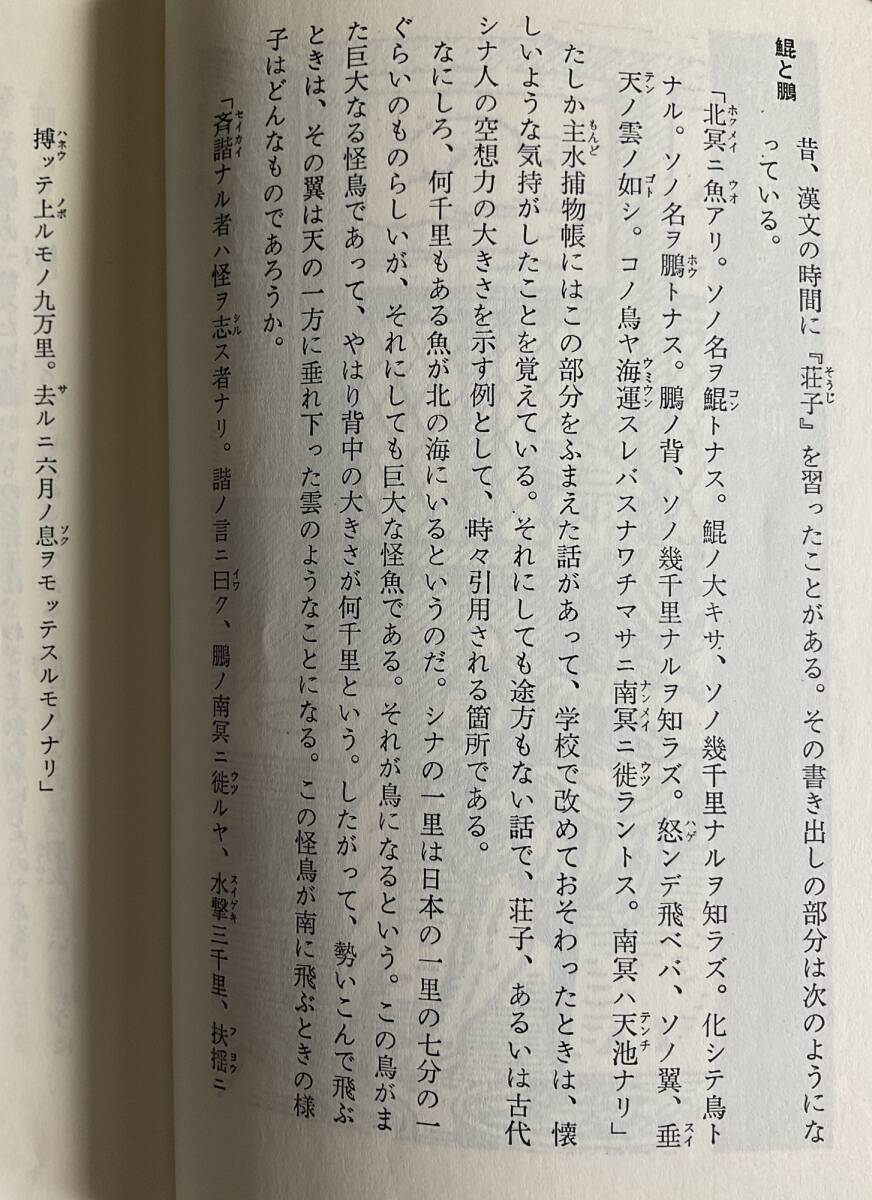 鯤と鵬
昔、漢文の時間に『荘子』を習ったことがある。その書き出しの部分は次のようにな
っている。
「北冥ニ魚アリ。ソノ名ヲ鯤トナス。鯤ノ大キサ、ソノ幾千里ナルヲ知ラズ。化シテ鳥ト
ナル。ソノ名ヲ鵬トナス。鵬ノ背、ソノ幾千里ナルヲ知ラズ。怒ンデ飛ベバ、ソノ翼、垂
天ノ雲ノ如シ。コノ鳥ヤ海運スレバスナワチマサニ南冥ニ徙ラントス。南冥ハ天池ナリ」
たしか主水捕物帳にはこの部分をふまえた話があって、学校で改めておそわったときは、懐
しいような気持がしたことを覚えている。それにしても途方もない話で、荘子、あるいは古代
シナ人の空想力の大きさを示す例として、時々引用される箇所である。
なにしろ、何千里もある魚が北の海にいるというのだ。シナの一里は日本の一里の七分の一
ぐらいのものらしいが、それにしても巨大な怪魚である。それが鳥になるという。この鳥がま
た巨大なる怪鳥であって、やはり背中の大きさが何千里という。したがって、勢いこんで飛ぶ
ときは、その翼は天の一方に垂れ下った雲のようなことになる。この怪鳥が南に飛ぶときの様
子はどんなものであろうか。
「斉諧ナル者ハ怪ヲ志ス者ナリ。諧ノ言ニ曰ク、鵬ノ南冥ニ徙ルヤ、水撃三千里、扶揺ニ
搏ッテ上ルモノ九万里。去ルニ六月ノ息ヲモッテスルモノナリ」